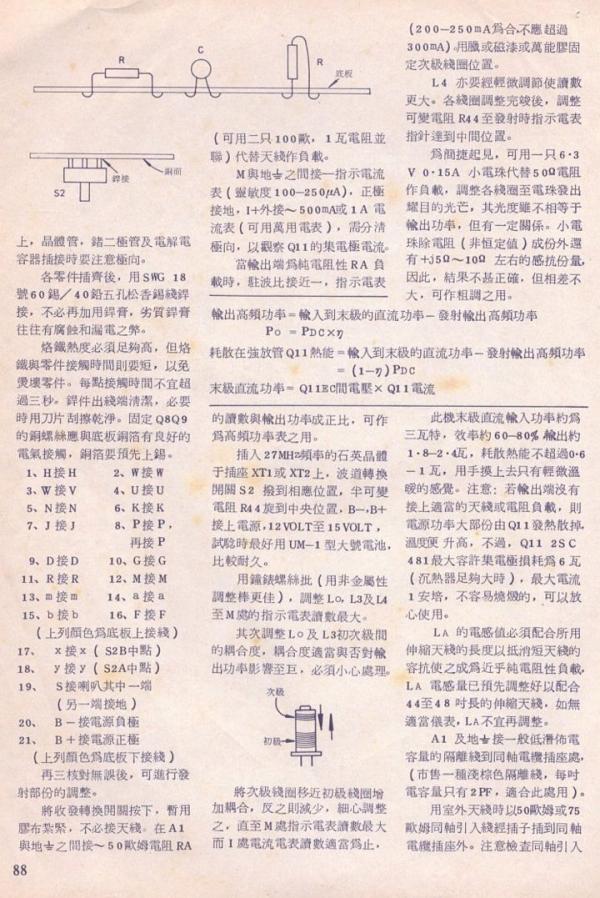 R
C
R
底板
銲接
銅面
S2
上，晶體管，鍺二極管及電解電
容器插接時要注意極向。
各零件插齊後，用SWG 18
號60錫／40鉛五孔松香錫綫銲
接，不必再加用銲膏，劣質銲膏
往往有腐蝕和漏電之弊。
烙鐵熱度必須足夠高，但烙
鐵與零件接觸時間則要短，以免
燙壞零件。每點接觸時間不宜超
過三秒。銲件出綫端清潔，必要
時用刀片刮擦乾淨。固定Q8Q9
的銅螺絲應與底板銅箔有良好的
電氣接觸，銅箔要預先上錫。
1、H接H 2、W接W
3、W接V 4、U接U
5、N接N 6、K接K
7、J接J 8、P接P，
再接P
9、D接D 10、G接G
11、R接R 12、M接M
13、m接m 14、a接a
15、b接b 16、F接F
（上列顏色爲底板上接綫）
17、 x接x（S2B中點）
18、 y接y（S2A中點）
19、 S接喇叭其中一端
（另一端接地）
20、 B－接電源負極
21、 B＋接電源正極
（上列顏色爲底板下接綫）
再三核對無誤後，可進行發
射部份的調整。
將收發轉換開關按下，暫用
膠布紮緊，不必接天綫。在A1
與地⏚之間接～50歐姆電阻RA
（可用二只100歐，1瓦電阻並
聯）代替天綫作負載。
M與地⏚之間接一指示電流
表（靈敏度100—250μA），正極
接地，I+外接～500mA或1A電
流表（可用萬用電表），需分清
極向，以觀察Q11的集電極電流。
當輸出端爲純電阻性RA負
載時，駐波比接近一，指示電表
(200—250mA爲合，不應超過
300mA)。用臘或磁漆或萬能膠固
定次級綫圈位置。
L4 亦要經輕微調節使讀數
更大。各綫圈調整完竣後，調整
可變電阻R44至發射時指示電表
指針達到中間位置。
爲簡捷起見，可用一只6·3
V 0·15A 小電珠代替50Ω電阻
作負載，調整各綫圈至電珠發出
耀目的光芒，其光度雖不相等于
輸出功率，但有一定關係。小電
珠除電阻（非恒定值）成份外還
有+j5Ω～10Ω 左右的感抗份量，
因此，結果不甚正確，但相差不
大，可作粗調之用。
輸出高頻功率＝輸入到末級的直流功率－發射輸出高頻功率
Po ＝ PDC×η
耗散在強放管Q11熱能＝輸入到末級的直流功率－發射輸出高頻功率
＝ (1－η) PDC
末級直流功率＝ Q11EC間電壓×Q11電流
的讀數與輸出功率成正比，可作
爲高頻功率表之用。
插入27MHz頻率的石英晶體
于插座XT1或XT2上，波道轉換
開關S2 撥到相應位置，半可變
電阻R44旋到中央位置，B－，B+
接上電源，12VOLT至15VOLT，
試騐時最好用UM—1型大號電池，
比較耐久。
用鐘錶螺絲批（用非金屬性
調整棒更佳），調整Lo，L3及L4
至M處的指示電表讀數最大。
其次調整Lo及L3初次級間
的耦合度，耦合度適當與否對輸
出功率影響至巨，必須小心處理。
次級
初級
將次級綫圈移近初級綫圈增
加耦合，反之則減少，細心調整
之，直至M處指示電表讀數最大
而I處電流電表讀數適當爲止，
此機末級直流輸入功率約爲
三瓦特，效率約60—80%輸出約
1·8—2·4瓦，耗散熱能不超過0·6
－1瓦，用手摸上去只有輕微溫
暖的感覺。注意：若輸出端沒有
接上適當的天綫或電阻負載，則
電源功率大部份由Q11發熱散掉，
溫度便升高，不過，Q11 2SC
481最大容許集電極損耗爲6瓦
（沉熱器足夠大時），最大電流
1安培，不容易燒燬的，可以放
心使用。
LA 的電感值必須配合所用
伸縮天綫的長度以抵消短天綫的
容抗使之成爲近乎純電阻性負載，
LA 電感量已預先調整好以配合
44至48吋長的伸縮天綫，如無
適當儀表，LA不宜再調整。
A1 及地⏚接一般低潛佈電
容量的隔離綫到同軸電纜插座處，
（市售一種淺棕色隔離綫，每吋
電容量只有2PF，適合此處用）。
用室外天綫時以50歐姆或75
歐姆同軸引入綫經插子插到同軸
電纜插座外。注意檢查同軸引入
88